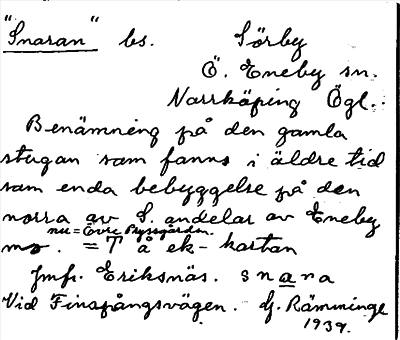 "Snaran" bs. Sörby
Ö. Eneby sn.
Norrköping Ögl.
Benämning på den gamla
stugan som fanns i äldre tid
som enda bebyggelse på den
norra av S. andelar av Eneby
nu = Övre Ryssgården.
ms. = T å ek-kartan
Jmf. Eriksnäs. snara
Vid Finspångsvägen. G. Rämminge
1939.